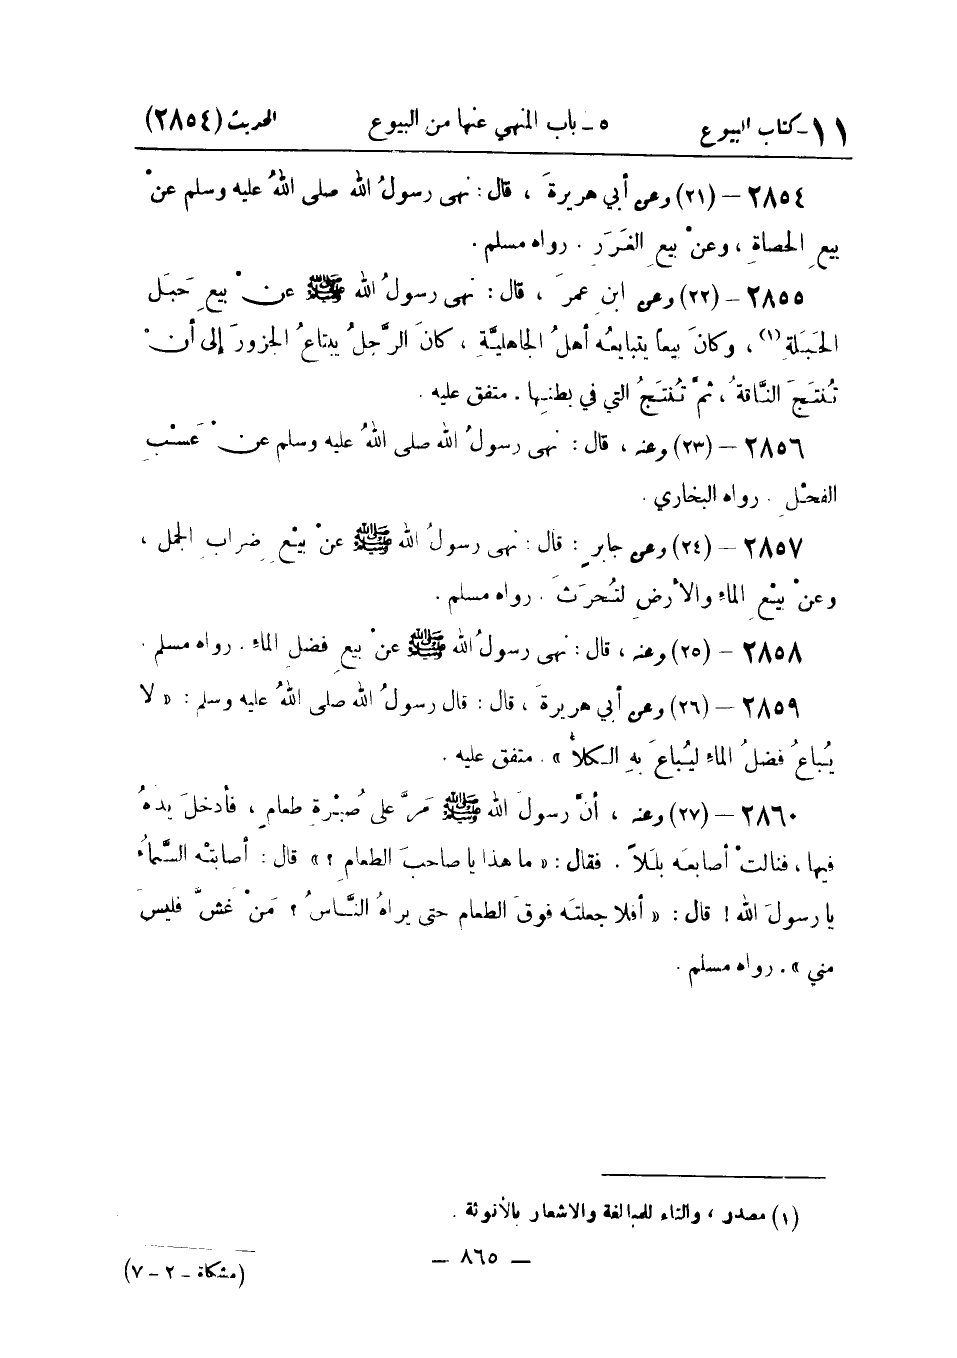 ١١ - كتاب البيوع ٥ - باب المنهي عنها من البيوع الحديث (٢٨٥٤)
٢٨٥٤ - (٢١) وعن أبي هريرةَ ، قال : نهى رسولُ الله صلى اللهُ عليه وسلم عنْ
بيعِ الحصاةِ ، وعنْ بيعِ الغَرَرِ . رواه مسلم .
٢٨٥٥ - (٢٢) وعن ابنِ عمرَ ، قال : نهى رسولُ الله ﷺ عنْ بيعِ حَبَلِ
الحَبَلةِ (١) ، وكانَ بيعاً يتبايعُه أهلُ الجاهليَّةِ ، كانَ الرَّجلُ يبتاعُ الجزورَ إلى أنْ
تُنتَجَ النَّاقةُ ، ثمَّ تُنتَجُ التي في بطنِها . متفق عليه .
٢٨٥٦ - (٢٣) وعنه ، قال : نهى رسولُ الله صلى اللهُ عليه وسلم عنْ عَسْبِ
الفحْلِ . رواه البخاري .
٢٨٥٧ - (٢٤) وعن جابرٍ : قال : نهى رسولُ الله ﷺ عنْ بيْعِ ضِرابِ الجمل ،
وعنْ بيْعِ الماءِ والأرضِ لتُحرَثَ . رواه مسلم .
٢٨٥٨ - (٢٥) وعنه ، قال : نهى رسولُ الله ﷺ عنْ بيعِ فضلِ الماءِ . رواه مسلم .
٢٨٥٩ - (٢٦) وعن أبي هريرةَ ، قال : قال رسولُ الله صلى اللهُ عليه وسلم : « لا
يُباعُ فضلُ الماءِ ليُباعَ بهِ الكلأُ » . متفق عليه .
٢٨٦٠ - (٢٧) وعنه ، أنَّ رسولَ الله ﷺ مَرَّ على صُبْرةِ طعامٍ ، فأدخلَ يدَهُ
فيها ، فنالتْ أصابعَه بلَلاً . فقال : « ما هذا يا صاحبَ الطعامِ ؟ » قال : أصابتْه السَّماءُ
يا رسولَ الله ! قال : « أفلا جعلتَه فوقَ الطعام حتى يراهُ النَّاسُ ؟ مَنْ غشَّ فليسَ
مني » . رواه مسلم .
(١) مصدر ، والتاء للمبالغة والاشعار بالأنوثة .
— ٨٦٥ —
(مشكاة - ٢ - ٧)